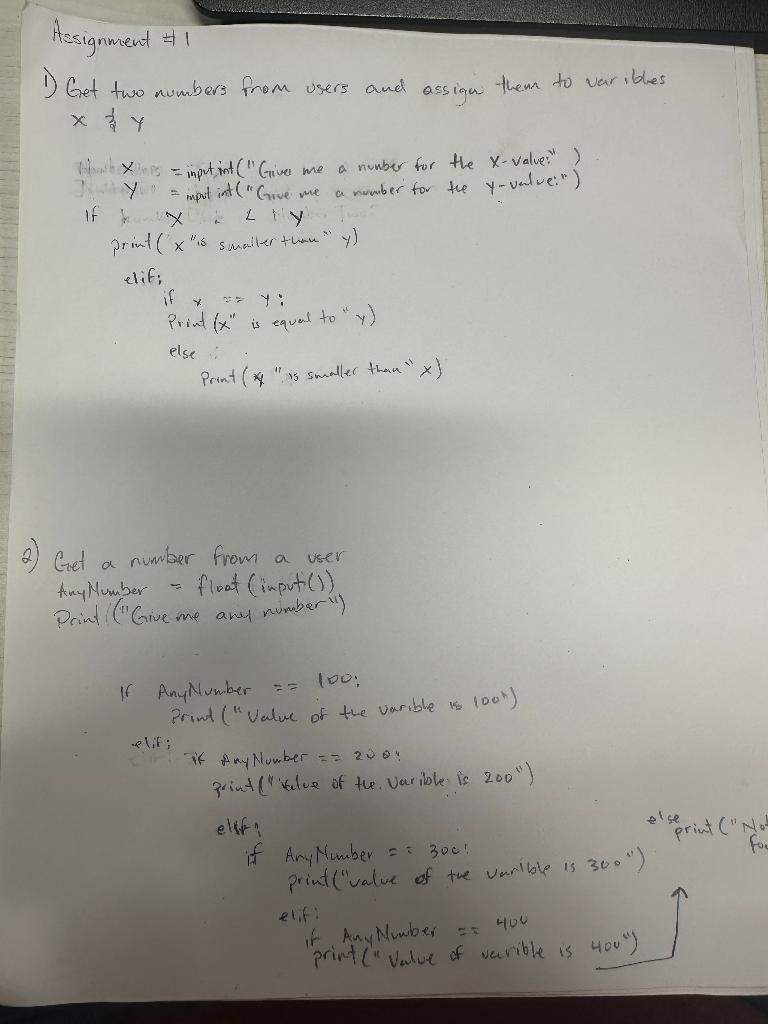 Assignment #1
1) Get two numbers from users and assign them to varibles
x & y
x = input int("Give me a number for the x-value:" )
y = input int("Give me a number for the y-value:")
If x < y
print( x "is smaller than" y)
elif:
if x == y:
Print (x" is equal to " y)
else :
Print ( y " is smaller than " x)
2) Get a number from a user
AnyNumber = float (input())
Print ("Give me any number")
If AnyNumber == 100:
Print ("Value of the varible is 100")
elif:
if AnyNumber == 200:
print("Value of the varible is 200")
elif:
if AnyNumber == 300:
print("value of the varible is 300")
elif:
if AnyNumber == 400
print(" Value of varible is 400")
else
print("Not
fou